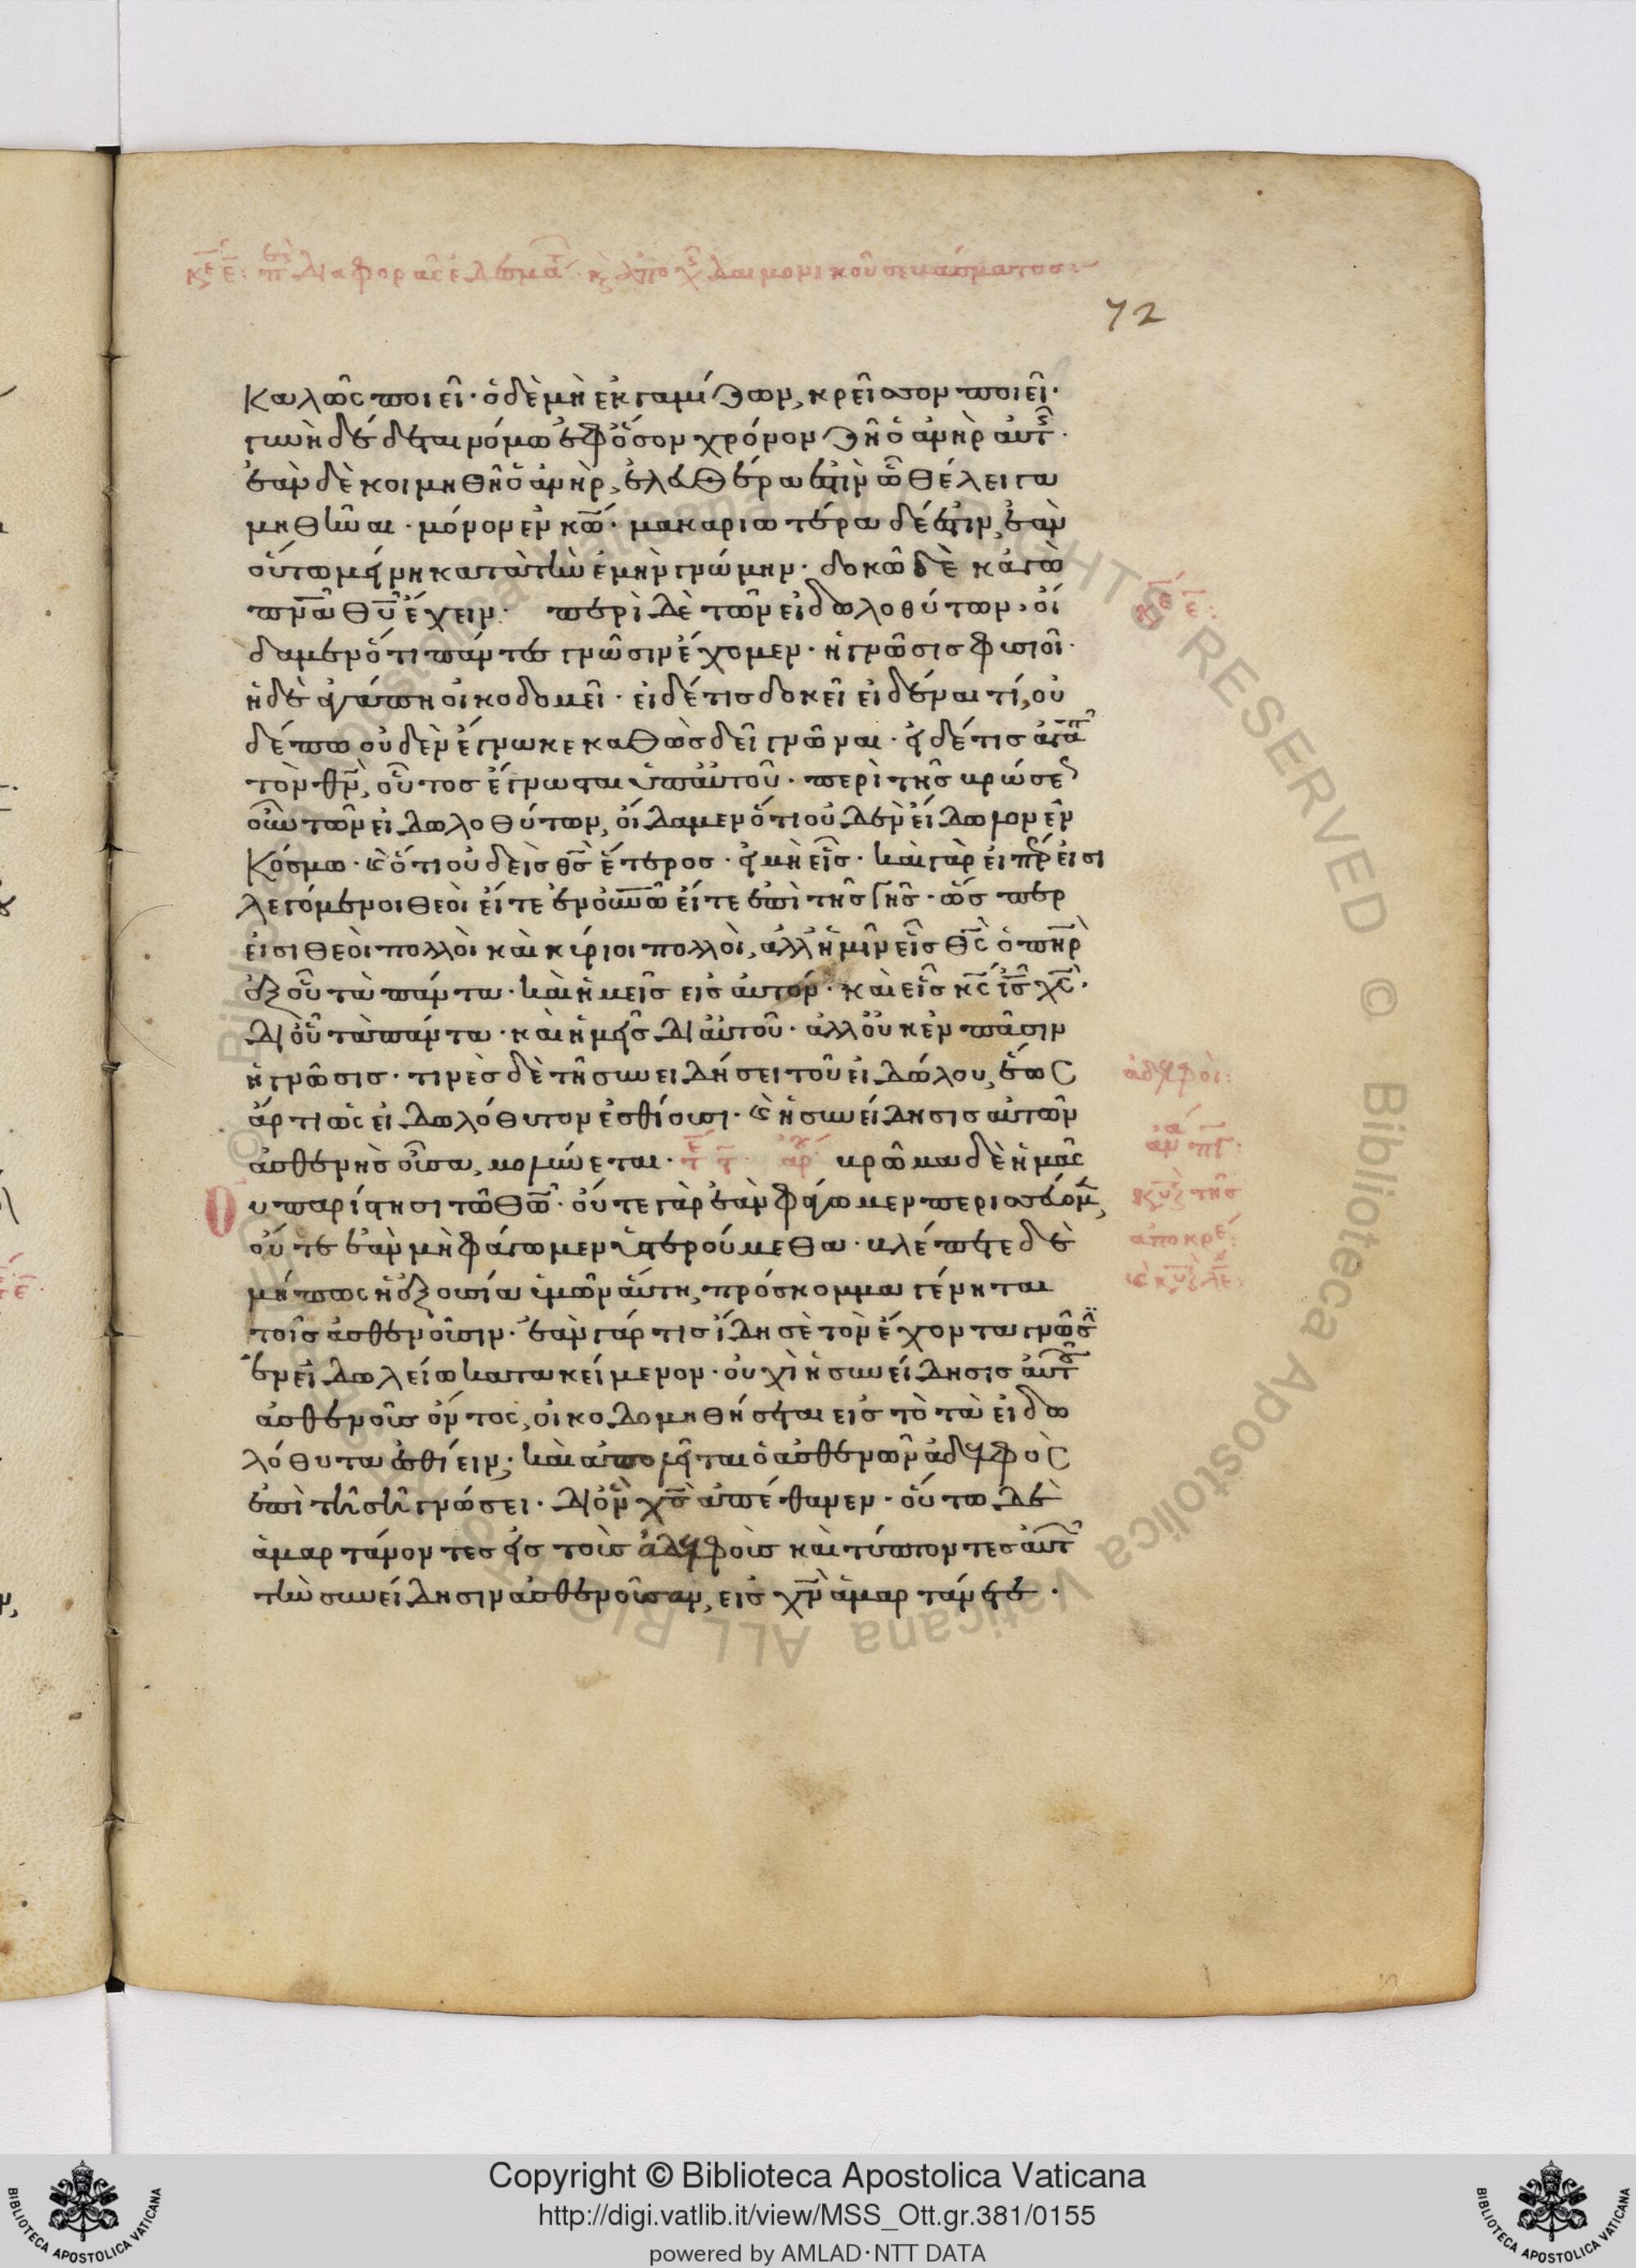 72
καλῶς ποιεῖ· ὁ δὲ μὴ ἐκγαμίζων, κρεῖσσον ποιεῖ·
γυνὴ δέδεται νόμω ἐφ ὅσον χρόνον ζῆ ὁ ἀνὴρ αὐτ·
ἐὰν δὲ κοιμηθῆ ὁ ἀνὴρ, ἐλευθέρα ἐστὶν ὧ θέλει γα
μηθῆναι· μόνον ἐν κω· μακαριωτέρα δέ ἐστιν, ἐὰν
οὕτω μείνη κατὰ τὴν ἐμὴν γνώμην· δοκῶ δὲ κἀγὼ
πνα θυ ἔχειν· περὶ δὲ τῶν εἰδωλοθύτων, οἴ
δαμεν ὅτι πάντες γνῶσιν ἔχομεν· ἡ γνῶσις φυσιοῖ·
ἡ δὲ ἀγάπη οἰκοδομεῖ· εἰ δέ τις δοκεῖ εἰδέναι τί, οὐ
δέπω οὐδὲν ἔγνωκε καθὼς δεῖ γνῶναι· εἰ δέ τις ἀγαπ
τὸν θν, οὗτος ἔγνωσται ὑπ αὐτοῦ· περὶ τῆς βρώσε
οὖν τῶν εἰδωλοθύτων, οἴδαμεν ὅτι οὐδὲν εἴδωλον ἐν
κόσμω· καὶ ὅτι οὐδεὶς θς ἕτερος· εἰ μὴ εἷς· καὶ γὰρ εἴπερ εἰσι
λεγόμενοι θεοὶ εἴτε ἐν οὐνω εἴτε ἐπὶ τῆς γῆς· ὥσπερ
εἰσι θεοὶ πολλοὶ καὶ κύριοι πολλοὶ, ἀλλ ἡμῖν εἷς θς ὁ πηρ
ἐξ οὗ τὰ πάντα· καὶ ἡμεῖς εἰς αὐτόν· καὶ εἷς κς ις χς·
δι οὗ τὰ πάντα· καὶ ἡμεῖς δι αὐτοῦ· ἀλλ οὐκ ἐν πᾶσιν
ἡ γνῶσις· τινὲς δὲ τῆ συνειδήσει τοῦ εἰδώλου, ἕως
ἄρτι ὡς εἰδωλόθυτον ἐσθίουσι· καὶ ἡ συνείδησις αὐτῶν
ἀσθενὴς οὖσα, μολύνεται· βρῶμα δὲ ἡμᾶς
Ου παρίστησι τῶ θω· οὔτε γὰρ ἐὰν φάγωμεν περισσεύομ,
οὔτε ἐὰν μὴ φάγωμεν ὑστερούμεθα· βλέπετε δὲ
μήπως ἡ ἐξουσία ὑμῶν αὕτη, πρόσκομμα γένηται
τοῖς ἀσθενοῦσιν· ἐὰν γάρ τις ἴδη σὲ τὸν ἔχοντα γνῶσ
ἐν εἰδωλείω κατακείμενον· οὐχὶ ἡ συνείδησις αὐτ
ἀσθενοῦς ὄντος, οἰκοδομηθήσεται εἰς τὸ τὰ εἰδω
λόθυτα ἐσθίειν; καὶ ἀπολεῖται ὁ ἀσθενῶν ἀδελφὸς
ἐπὶ τῆ σῆ γνώσει· δι ὃν χς ἀπέθανεν· οὕτω δὲ
ἁμαρτάνοντες εἰς τοὺς ἀδελφοὺς καὶ τύπτοντες αὐτ
τὴν συνείδησιν ἀσθενοῦσαν, εἰς χν ἁμαρτάνετε·
ἀδελφοὶ:
Copyright © Biblioteca Apostolica Vaticana
http://digi.vatlib.it/view/MSS_Ott.gr.381/0155
powered by AMLAD·NTT DATA
BIBLIOTECA APOSTOLICA VATICANA
BIBLIOTECA APOSTOLICA VATICANA